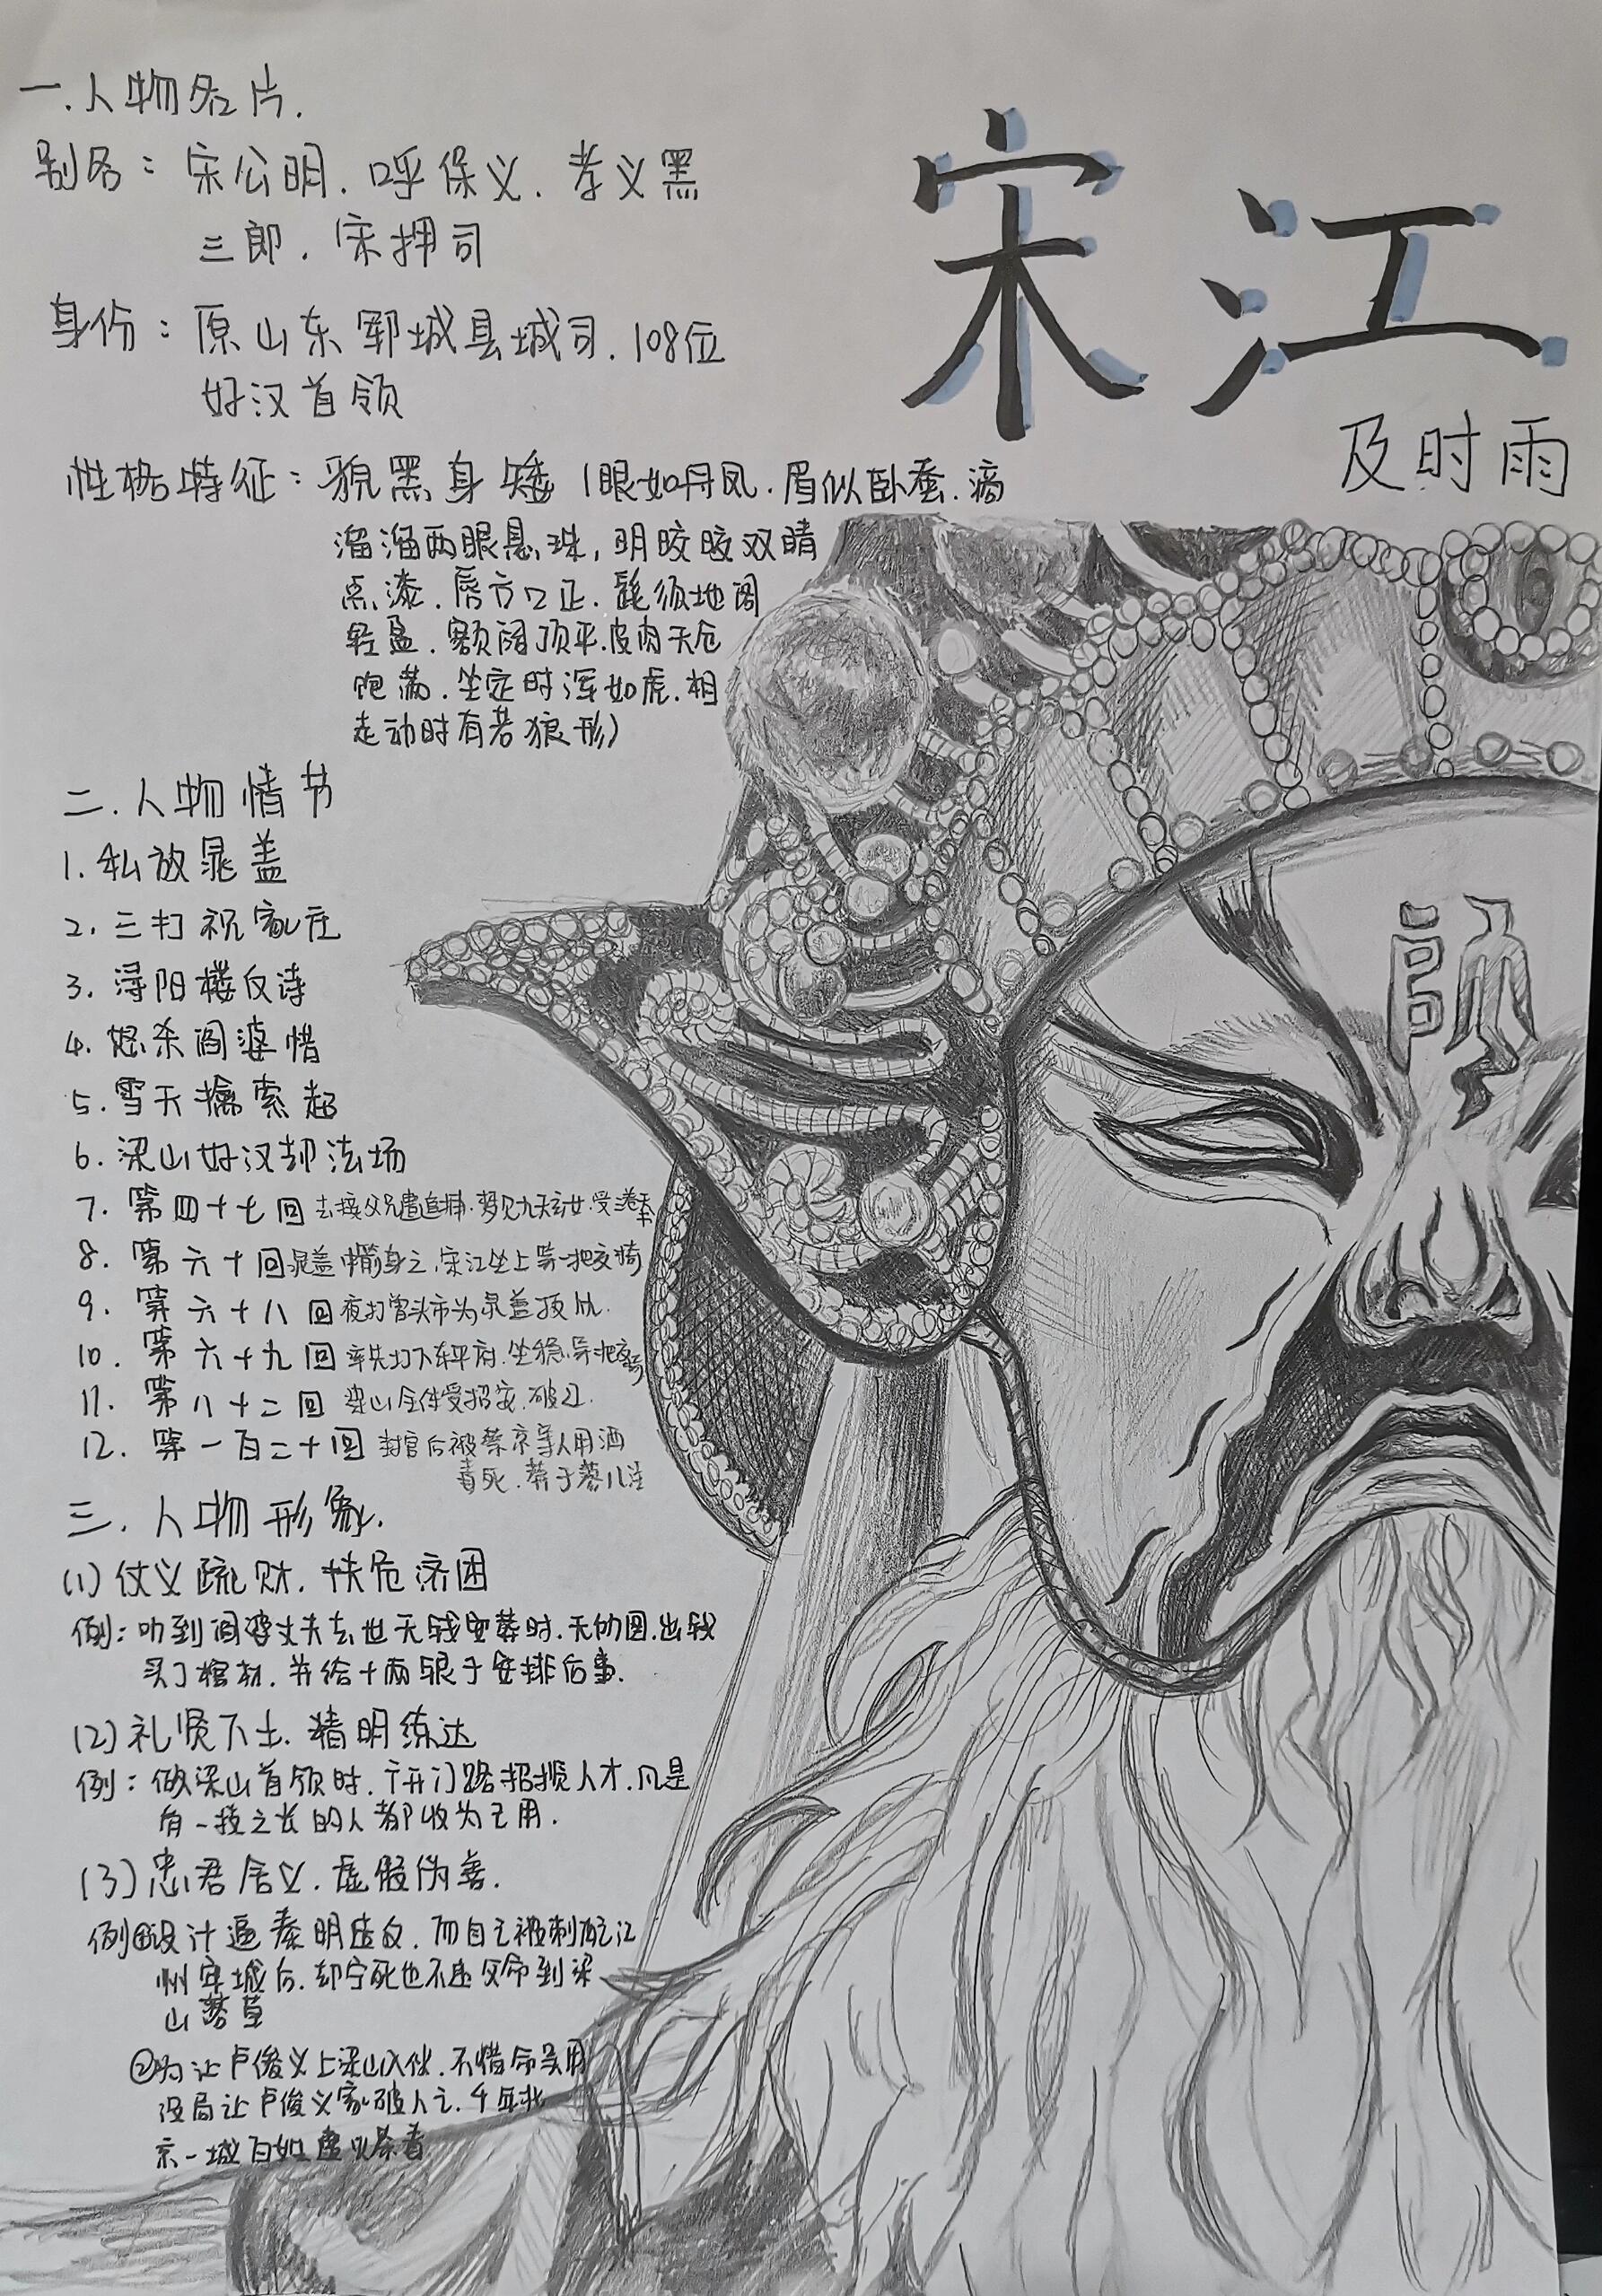 宋江
及时雨
一.人物名片.
别名：宋公明.呼保义.孝义黑
三郎.宋押司
身份：原山东郓城县城司.108位
好汉首领
性格特征：貌黑身矮（眼如丹凤.眉似卧蚕.滴
溜溜两眼悬珠，明皎皎双睛
点漆.唇方口正.髭须地阁
轻盈.额阔顶平.皮肉天仓
饱满.坐定时浑如虎.相
走动时有若狼形）
二.人物情节
1.私放晁盖
2.三打祝家庄
3.浔阳楼反诗
4.怒杀阎婆惜
5.雪天擒索超
6.梁山好汉劫法场
7.第四十七回 去接父兄遭追捕.梦见九天玄女.受
8.第六十回 晁盖中箭身亡.宋江坐上第一把交椅
9.第六十八回 夜打曾头市为晁盖报仇.
10.第六十九回 率先打下东平府.坐稳第一把交椅
11.第八十二回 梁山全体受招安.破辽.
12.第一百二十回 封官后被蔡京等人用酒
毒死.葬于蓼儿洼
三.人物形象.
(1)仗义疏财.扶危济困
例：听到阎婆丈夫去世无钱安葬时.无所图.出钱
买了棺材.并给十两银子安排后事.
(2)礼贤下士.精明练达
例：做梁山首领时.广开门路招揽人才.凡是
有一技之长的人都收为己用.
(3)忠君舍义.虚假伪善.
例①设计逼秦明造反.而自己被刺配江
州牢城后.却宁死也不违父命到梁
山落草
②为让卢俊义上梁山入伙.不惜命吴用
设局让卢俊义家破人亡.
京一城百姓